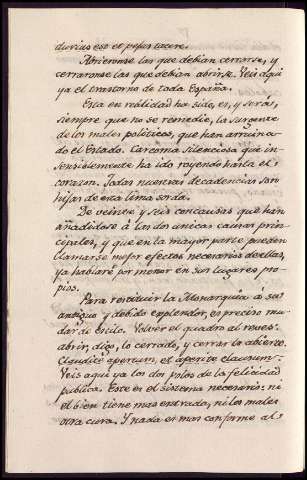 durius eso et pejus tacere.
Abrieronse las que debian cerrarse, y
cerraronse las que debian abrirse. Veis aqui
ya el trastorno de toda España.
Esta en realidad ha sido, es, y será,
siempre que no se remedie, la surgente
de los males politicos, que han arruina-
do el Estado. Carcoma silenciosa que in-
sensiblemente ha ido royendo hasta el
corazon. Todas nuestras decadencias son
hijas de esta lima sorda.
De veinte y seis concausas que han
añadidose á las dos unicas causas prin-
cipales, y que en la mayor parte pueden
llamarse mejor efectos necesarios de ellas,
ya hablaré por menor en sus lugares pro-
pios.
Para restituir la Monarquía á su
antiguo y debido esplendor, es preciso mu-
dar de estilo. Volver el quadro al reves:
abrir, digo, lo cerrado, y cerrar lo abierto.
Claudite apertum, et aperite clausum.
Veis aqui ya los dos polos de la felicidad
publica. Este es el sistema necesario: ni
el bien tiene mas entrada, ni los males
otra cura. Y nada es mas conforme al